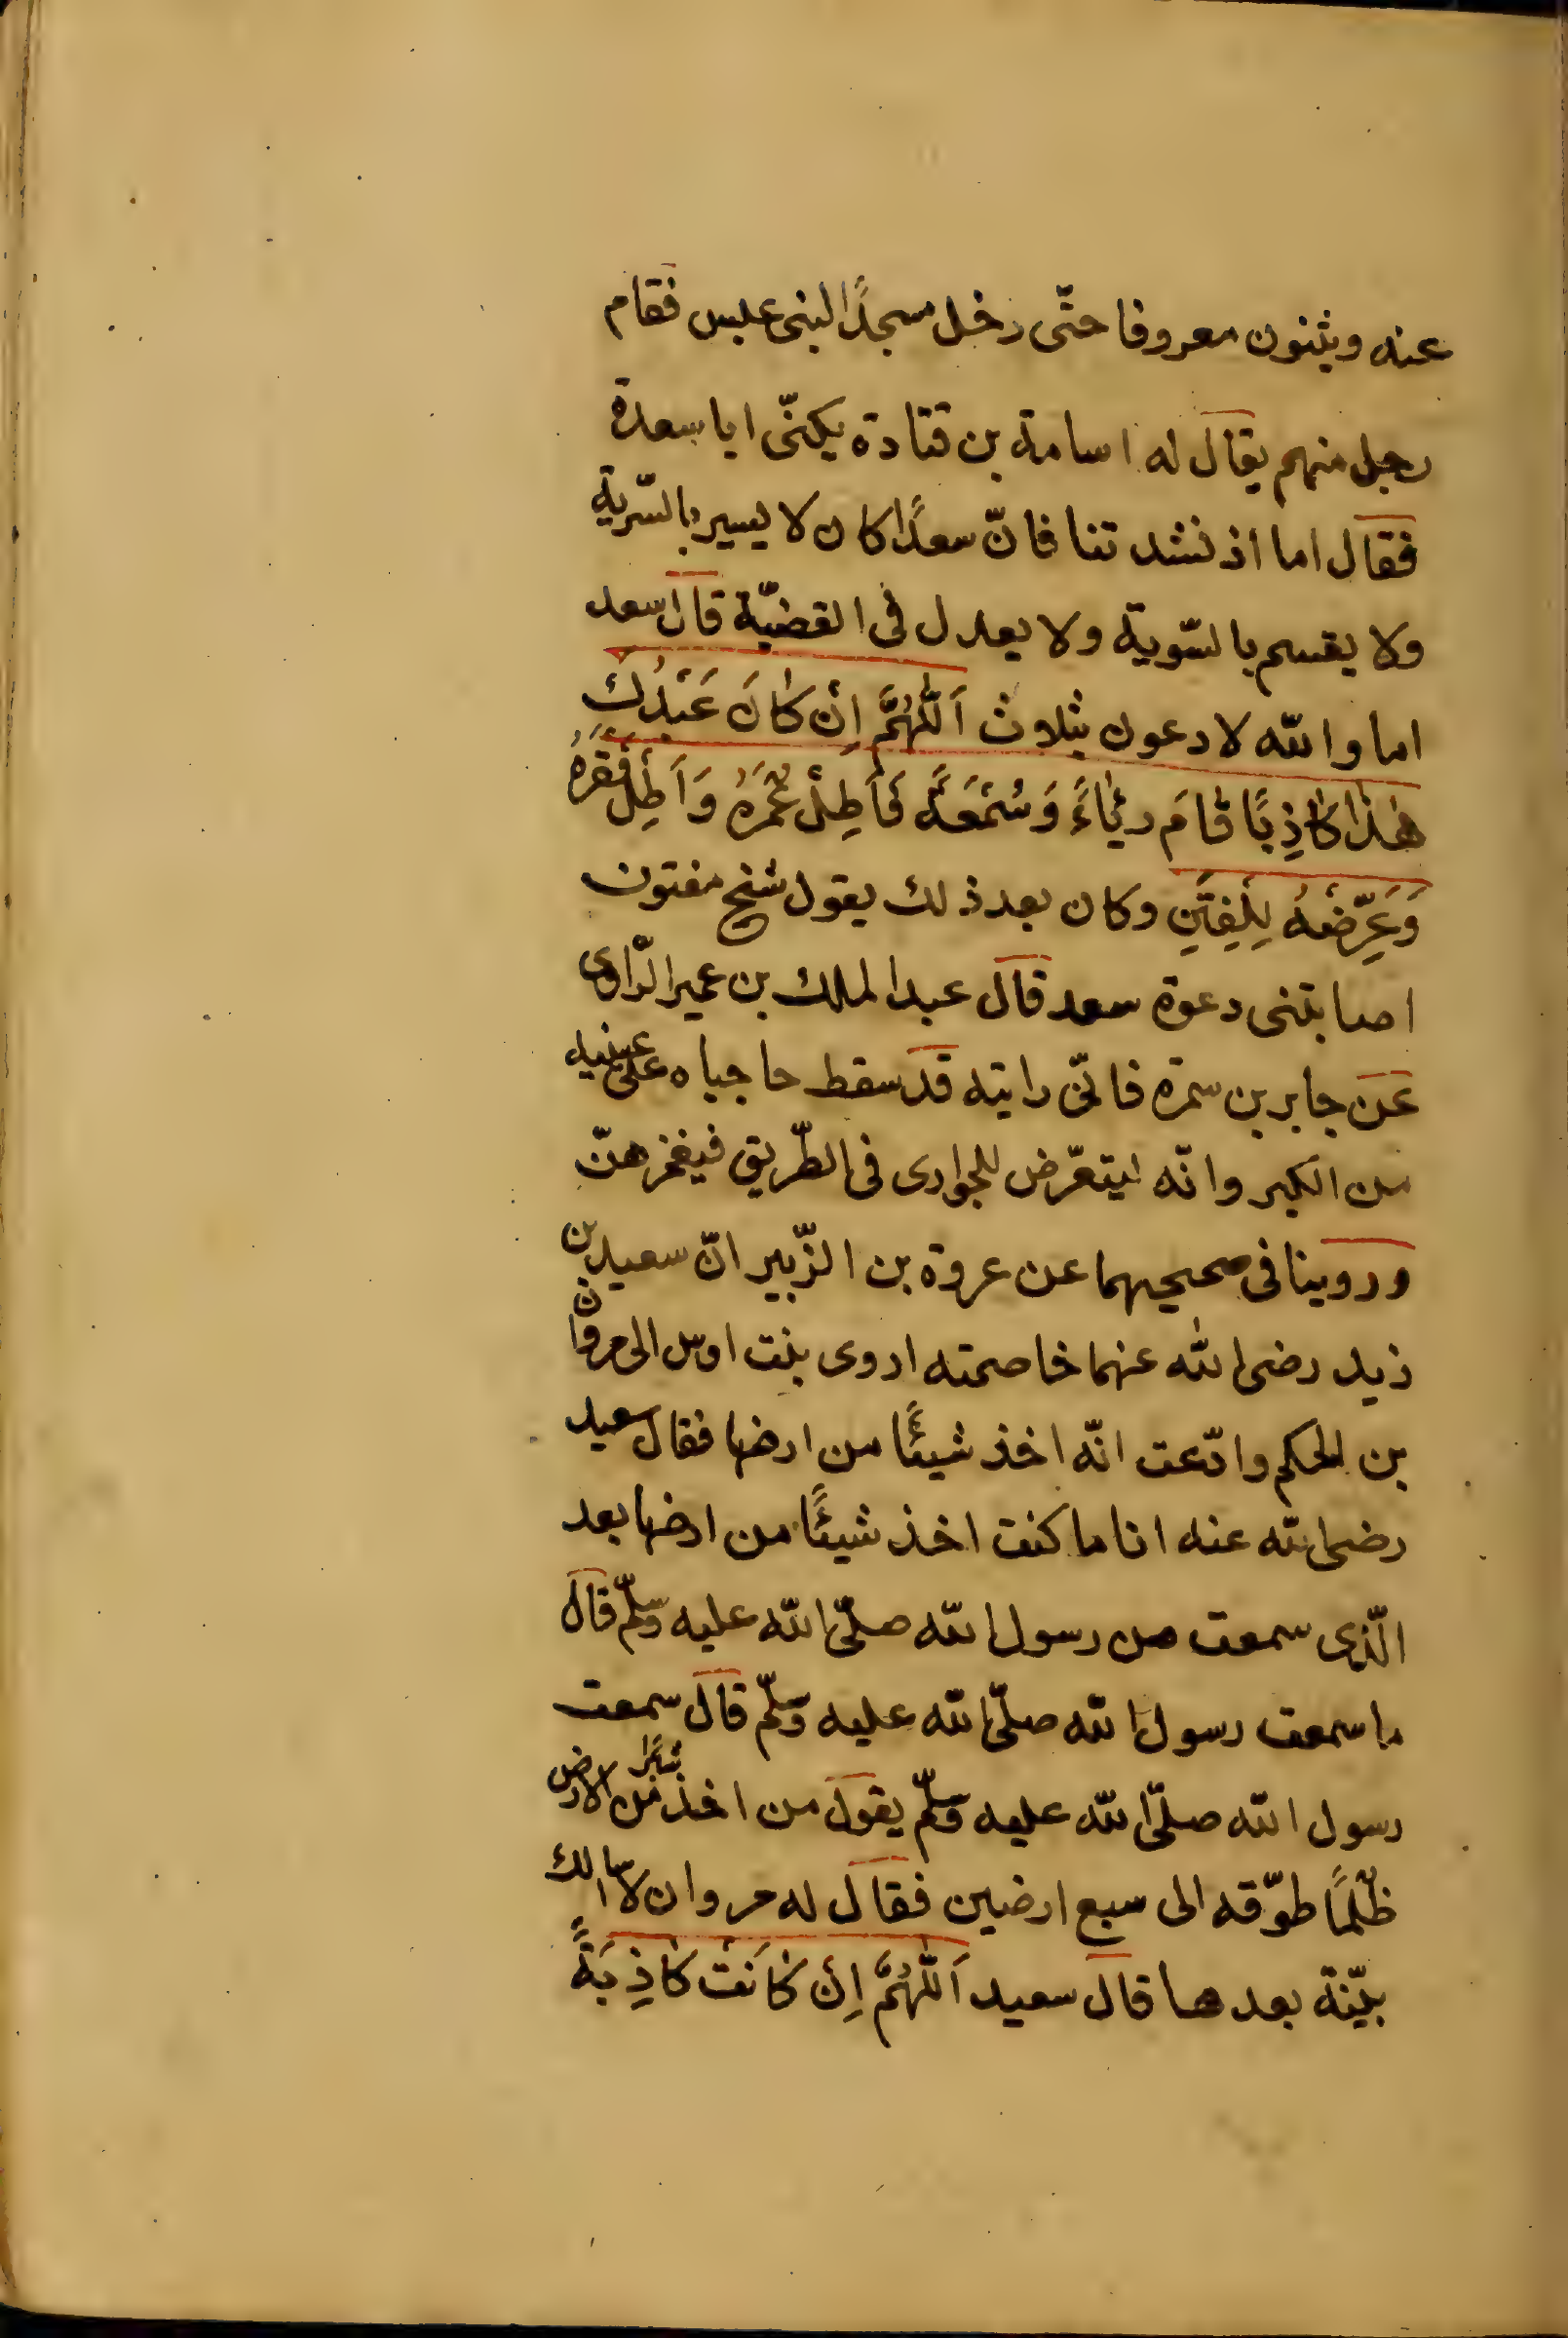 عنه ويثنون معروفا حتّى دخل مسجدًا لبنى عبس فقام
رجل منهم يقال له اسامة بن قتادة يكنّى ابا سعدة
فقال اما اذ نشدتنا فانّ سعدًا كان لا يسير بالسّرية
ولا يقسم بالسّوية ولا يعدل فى القضيّة قال سعد
اما والله لادعون بثلاث اَللّٰهُمَّ اِنْ كَانَ عَبْدُكَ
هٰذَا كَاذِبًا قَامَ رِيَاءً وَسُمْعَةً فَاَطِلْ عُمْرَهُ وَاَطِلْ فَقْرَهُ
وَعَرِّضْهُ لِلْفِتَنِ وكان بعد ذلك يقول شيخ مفتون
اصابتنى دعوة سعد قال عبد الملك بن عمير الرّاوى
عن جابر بن سمرة فانّى رايته قد سقط حاجباه على عينيه
من الكبر وانّه ليتعرّض للجوارى فى الطّريق فيغمزهنّ
وروينا فى صحيحيهما عن عروة بن الزّبير انّ سعيد بن
زيد رضى الله عنهما خاصمته اروى بنت اوس الى مروان
بن الحكم وادّعت انّه اخذ شيئًا من ارضها فقال سعيد
رضى الله عنه انا ما كنت اخذ شيئًا من ارضها بعد
الّذى سمعت من رسول الله صلّى الله عليه وسلّم قال
ما سمعت رسول الله صلّى الله عليه وسلّم قال سمعت
رسول الله صلّى الله عليه وسلّم يقول من اخذ شبرًا من الارض
ظلمًا طوّقه الى سبع ارضين فقال له مروان لا اسالك
بيّنة بعد هذا قال سعيد اَللّٰهُمَّ اِنْ كَانَتْ كَاذِبَةً